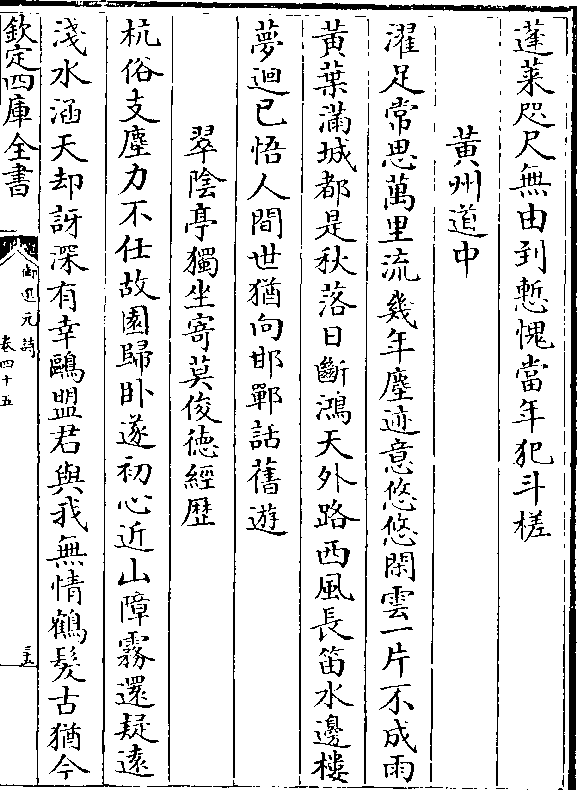 蓬萊咫尺無由到慙愧當年犯斗槎
黃州道中
濯足常思萬里流幾年塵迹意悠悠閑雲一片不成雨
黃葉滿城都是秋落日斷鴻天外路西風長笛水邊樓
夢迴已悟人間世猶向邯鄲話舊遊
翠陰亭獨坐寄莫俊徳經歴
杭俗支塵力不任故園歸卧遂初心近山障霧還疑逺
淺水涵天却訝深有幸鷗盟君與我無情鶴髪古猶今
欽定四庫全書
御選元詩
卷四十五